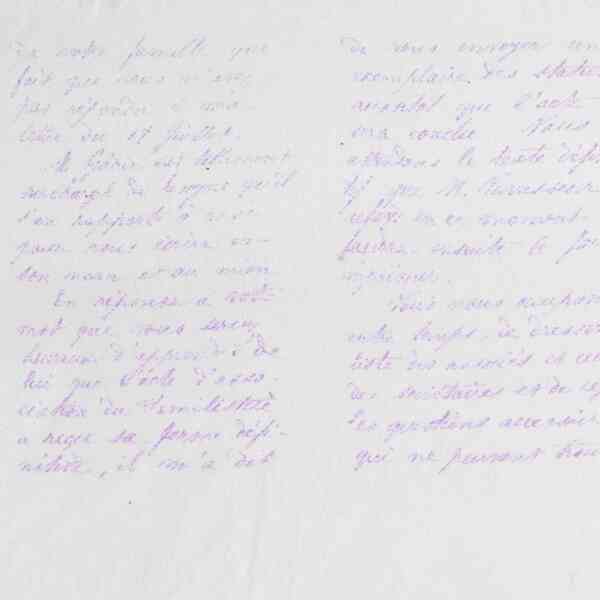 de notre famille que
fait que vous n'avez
pas répondu à ma
lettre du 17 juillet.
M. Godin est tellement
surchargé de besogne qu'il
s'en rapporte à moi
pour vous écrire en
son nom et au mien
En réponse à votre
mot que vous seriez
heureux d'apprendre de
lui que l'acte d'asso-
ciation du Familistère
a reçu sa forme défi-
nitive, il m'a dit
de vous envoyer un
exemplaire des statuts
aussitôt que l'acte
sera conclu Nous
attendons le texte défi
tif que M.
en ce moment.
ensuite le faire
imprimer.
nous
entre temps, de dresser
liste des associés et
des sociétaires et de
les questions accessoires
qui ne peuvent